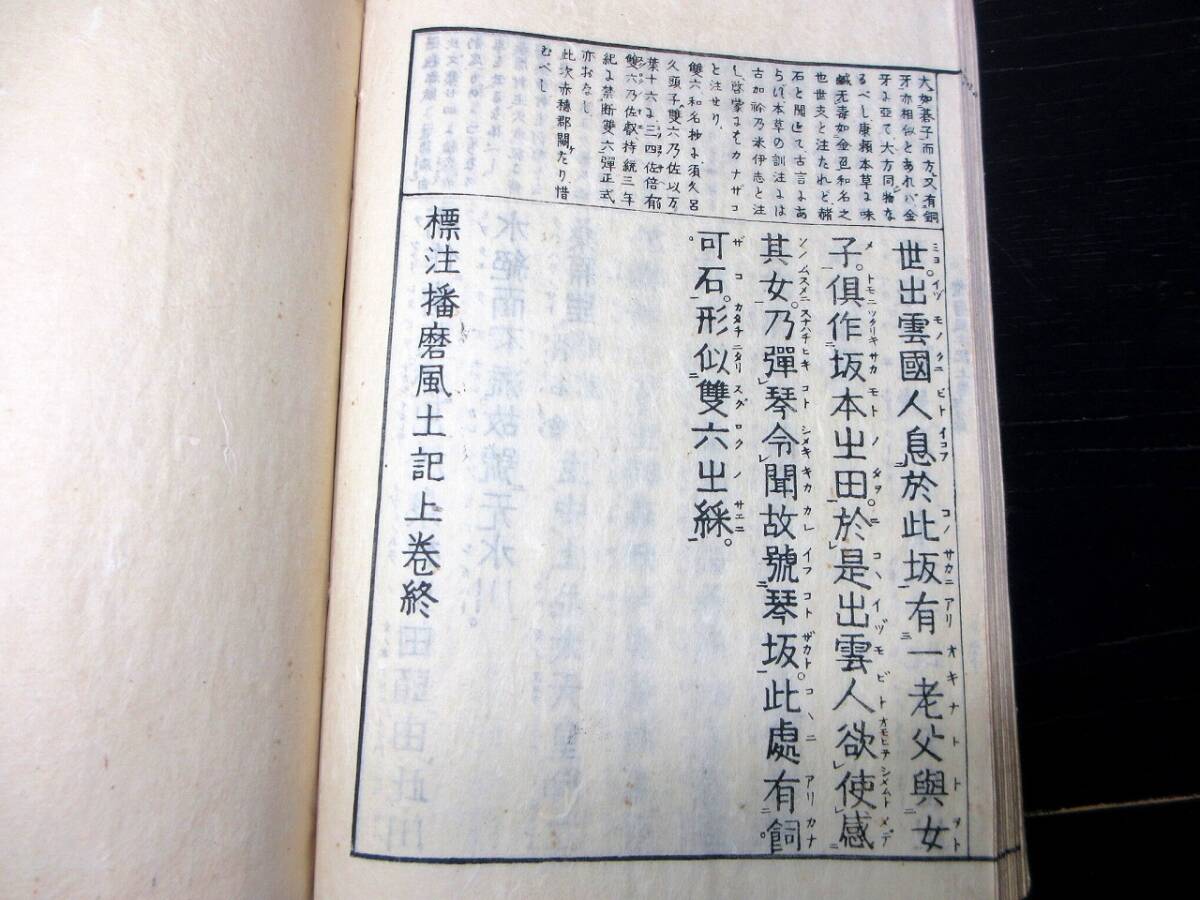 大如碁子而方又有銅
牙亦相似とあれバ金
牙よ亞て大方同物な
るべし康頼本草よ味
鹹无毒如金色和名之
世世支と注たれど諸
石と聞迚て古言よあ
らバ本草の訓注よは
古加祢乃米伊志と注
し啓蒙よもカナザコ
と注せり
雙六和名抄よ須久呂
久頭子雙六乃佐以万
葉十六よ三四佐倍有
雙六乃佐叡持統三年
紀よ禁断雙六彈正式
亦おなし
此次赤穂郡闕たり惜
むべし
世。出雲國人息於此坂有一老父與女
子。俱作坂本之田於是出雲人欲使感
其女。乃彈琴令聞故號琴坂。此處有銅
可石。形似雙六之綵。
標注播磨風土記上卷終